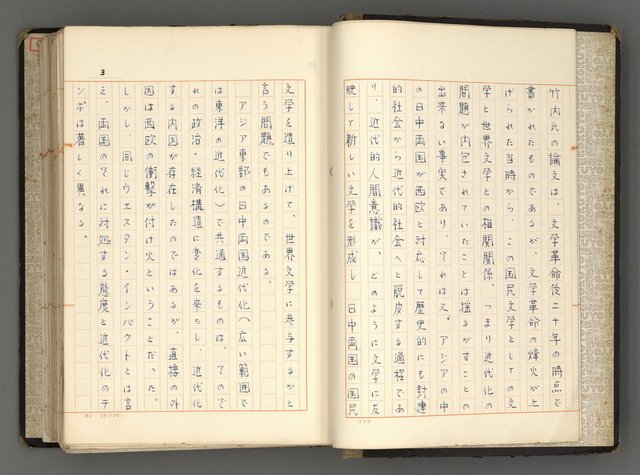 竹内氏の論文は、文学革命後二十年の時点で
書かれたものであるが、文学革命の烽火が上
げられた当時から、この国民文学としての文
学と世界文学との相関関係、つまり近代化の
問題が内包されていたことは揺るがすことの
出来るい事実であり、それは又、アジアの中
の日中両国が西欧と対応して歴史的にも封建
的社会から近代的社会へと脱皮する過程であ
り、近代的人間意識が、どのように文学に反
映して新しい文学を形成し 日中両国の国民
3
文学を造り上げて、世界文学に参与するかと
言う問題でもあるのである。
アジア東部の日中両国近代化(広い範囲で
は東洋の近代化)で共通するものは、そのぞ
れの政治・経済構造に変化を来たし、近代化
する内因が存在したのではあるが、直接の外
因は西欧の衝撃が付け火ということだった。
しかし、同じウエスタン・インパクトとは言
え、両国のそれに対処する態度と近代化のテ
ンポは著しく異なる。